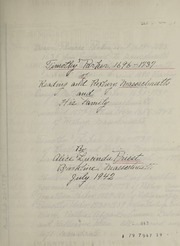 Timothy Parker 1696-1737
of
Reading and Roxbury Massachusetts
and
His Family
By
Alice Lucinda Priest
Brookline, Massachusetts
July 1942